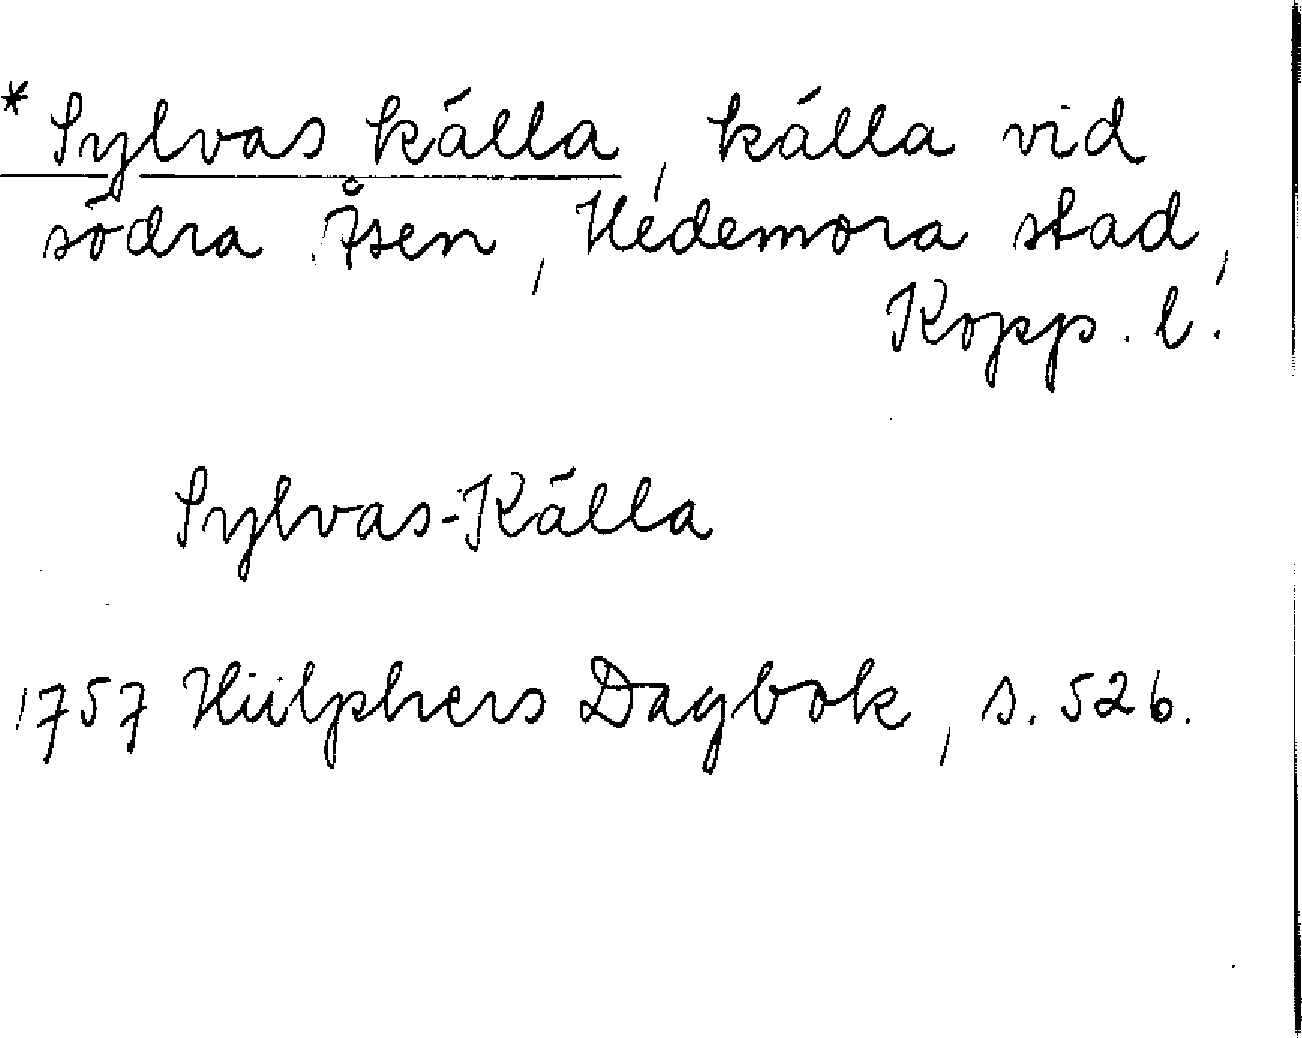 * Sylvas källa, källa vid
södra Åsen, Hedemora stad,
Kopp. l.
Sylvas-Källa
1757 Hülphers Dagbok, s. 526.